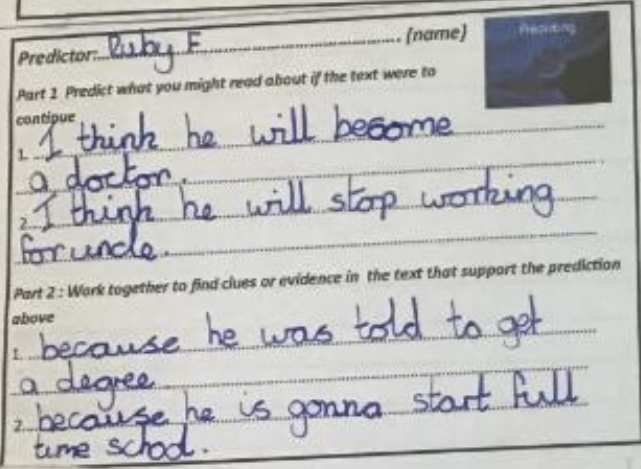 Predicting
Predictor: Ruby F (name)
Part 1 Predict what you might read about if the text were to
continue
1. I think he will become
a doctor.
2. I think he will stop working
for uncle.
Part 2 : Work together to find clues or evidence in the text that support the prediction
above
1. because he was told to get
a degree
2. because he is gonna start full
time school.